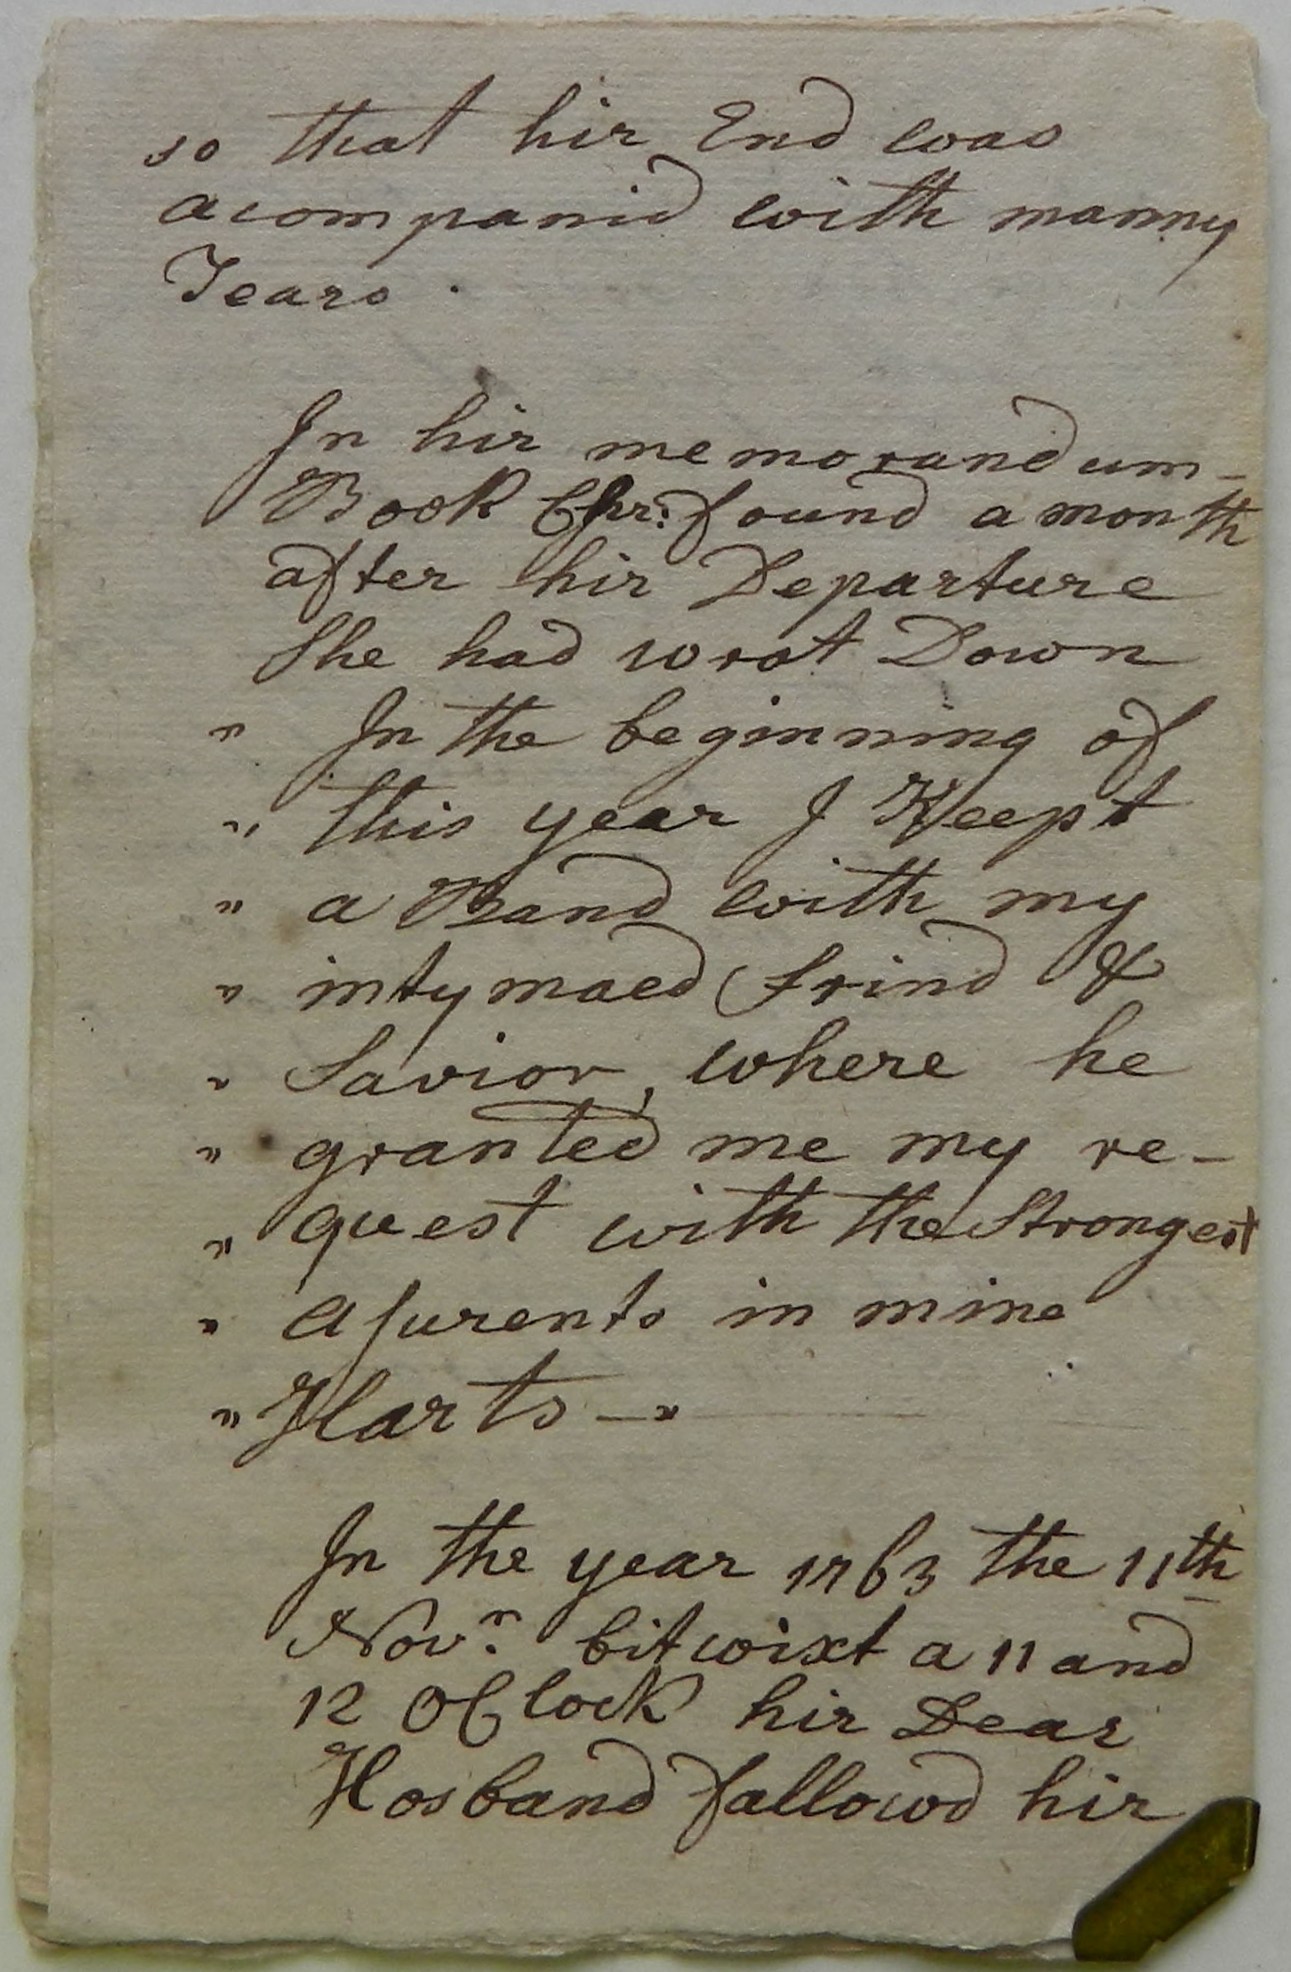 so that hir End was
acompanid with manny
Tears.
In hir memorandum-
Book Chr: found a month
after hir Departure
She had wrot Down
" In the beginning of
" this year I Keept
" a Band with my
" intymaed frind &
" Savior, where he
" granted me my re-
" quest with the Strongest
" Asurents in mine
" Harts —"
In the year 1763 the 11th
Novr. bitwixt a 11 and
12 OClock hir Dear
Hosband fallowd hir